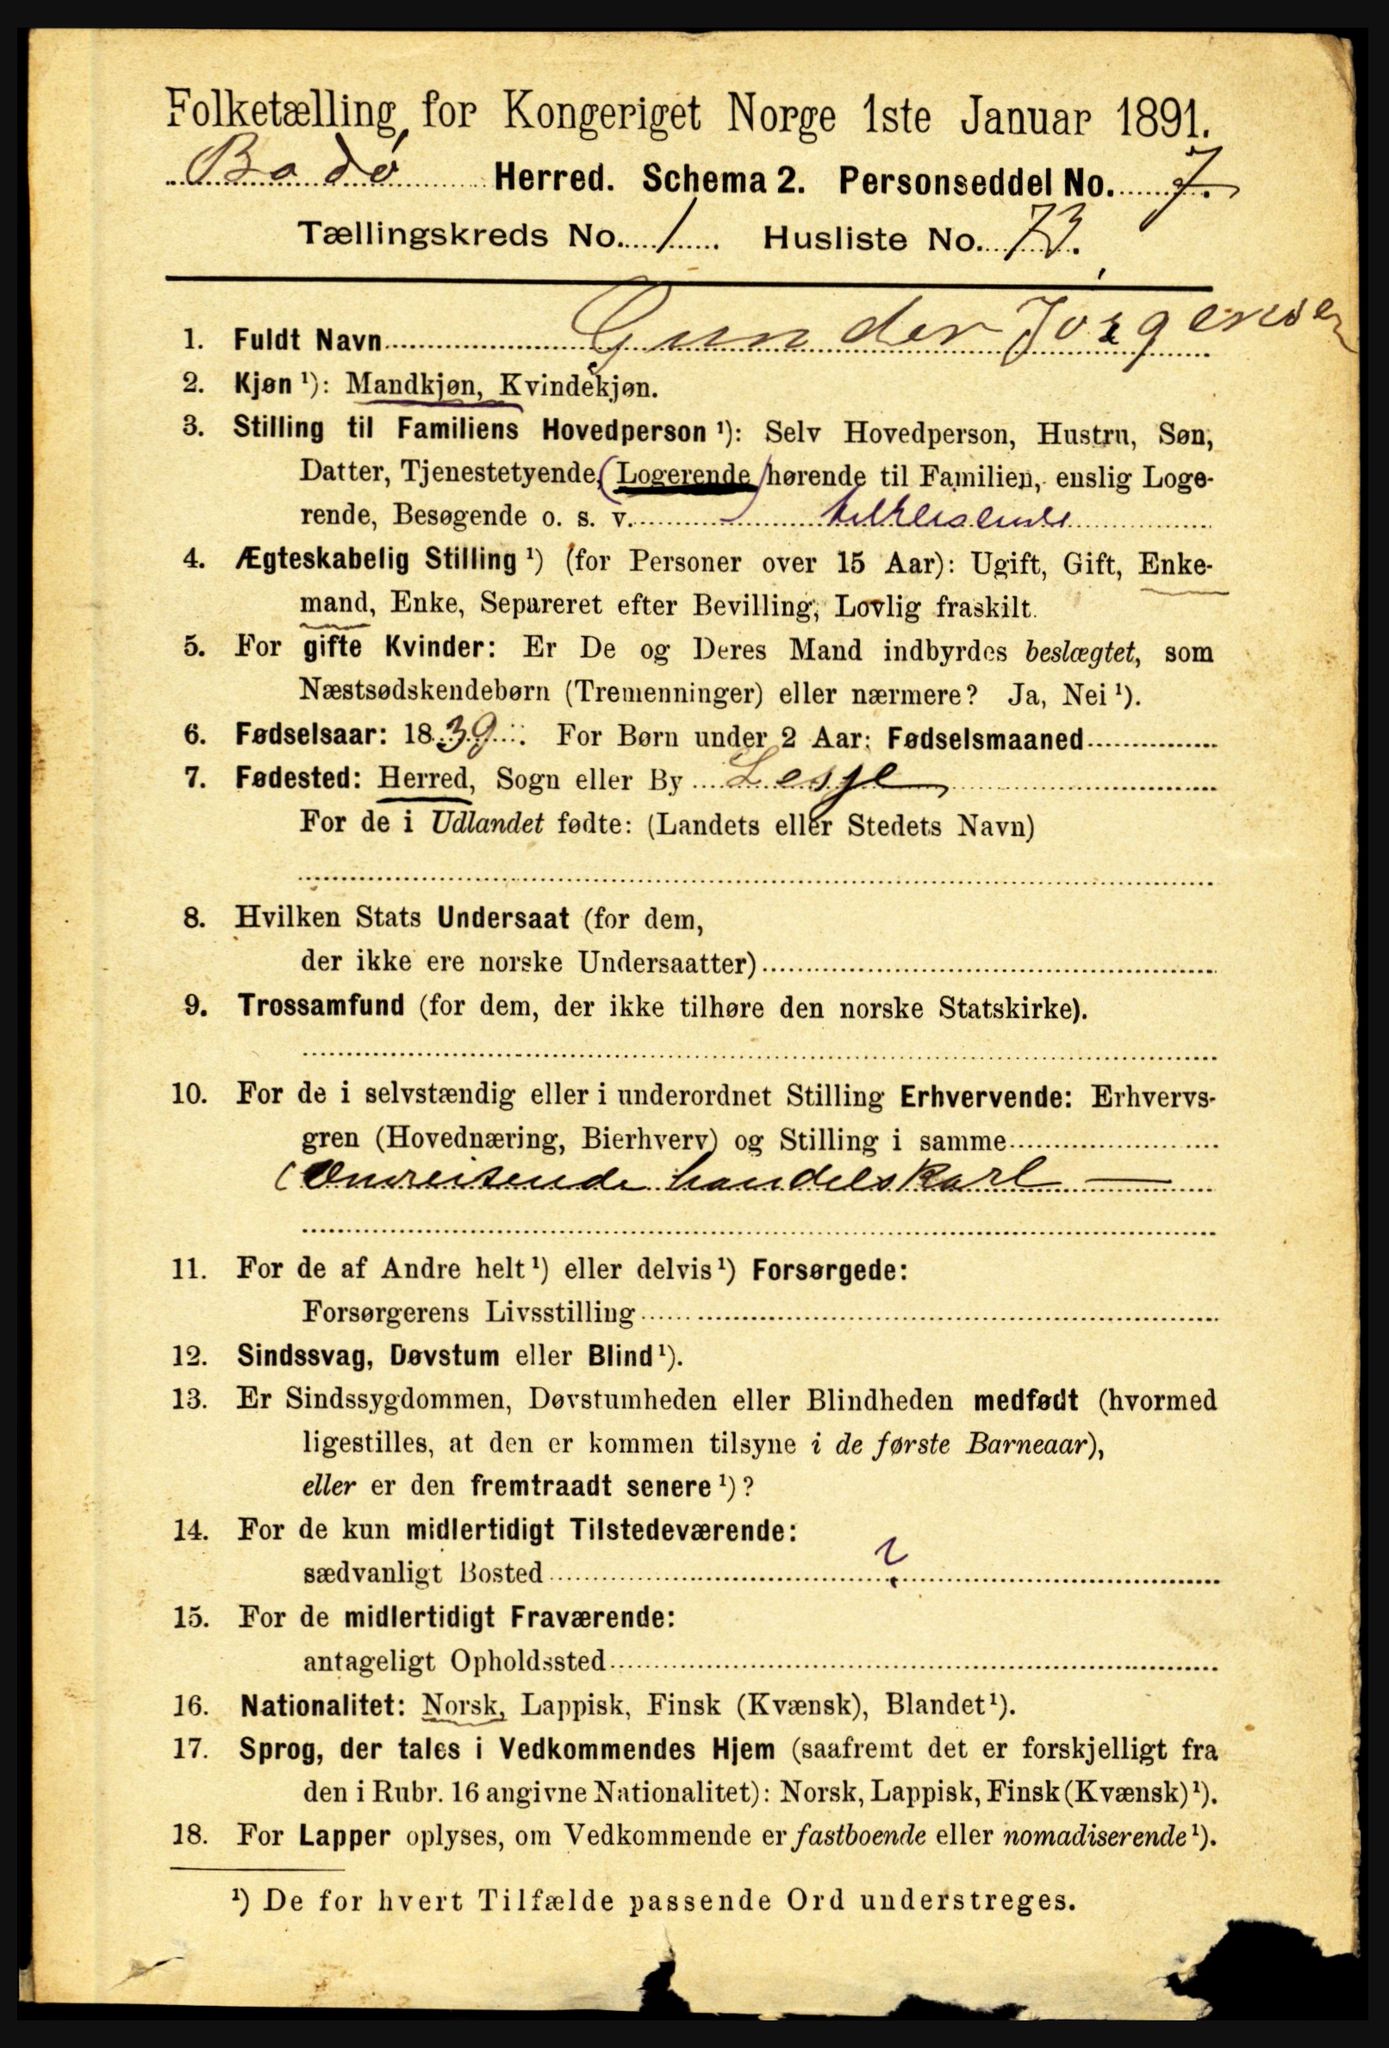 Folketælling for Kongeriget Norge 1ste Januar 1891.
Bodø Herred. Schema 2. Personseddel No. 7.
Tællingskreds No. 1 Husliste No. 73.
1. Fuldt Navn Gunder Jørgensen
2. Kjøn ¹): Mandkjøn, Kvindekjøn.
3. Stilling til Familiens Hovedperson ¹): Selv Hovedperson, Hustru, Søn,
Datter, Tjenestetyende, (Logerende) hørende til Familien, enslig Loge-
rende, Besøgende o. s. v. tilreisende
4. Ægteskabelig Stilling ¹) (for Personer over 15 Aar): Ugift, Gift, Enke-
mand, Enke, Separeret efter Bevilling, Lovlig fraskilt.
5. For gifte Kvinder: Er De og Deres Mand indbyrdes beslægtet, som
Næstsødskendebørn (Tremenninger) eller nærmere? Ja, Nei ¹).
6. Fødselsaar: 1839. For Børn under 2 Aar: Fødselsmaaned
7. Fødested: Herred, Sogn eller By Lesje
For de i Udlandet fødte: (Landets eller Stedets Navn)
8. Hvilken Stats Undersaat (for dem,
der ikke ere norske Undersaatter)
9. Trossamfund (for dem, der ikke tilhøre den norske Statskirke).
10. For de i selvstændig eller i underordnet Stilling Erhvervende: Erhvervs-
gren (Hovednæring, Bierhverv) og Stilling i samme
Omreisende handelskarl —
11. For de af Andre helt ¹) eller delvis ¹) Forsørgede:
Forsørgerens Livsstilling
12. Sindssvag, Døvstum eller Blind ¹).
13. Er Sindssygdommen, Døvstumheden eller Blindheden medfødt (hvormed
ligestilles, at den er kommen tilsyne i de første Barneaar),
eller er den fremtraadt senere ¹)?
14. For de kun midlertidigt Tilstedeværende:
sædvanligt Bosted ?
15. For de midlertidigt Fraværende:
antageligt Opholdssted
16. Nationalitet: Norsk, Lappisk, Finsk (Kvænsk), Blandet ¹).
17. Sprog, der tales i Vedkommendes Hjem (saafremt det er forskjelligt fra
den i Rubr. 16 angivne Nationalitet): Norsk, Lappisk, Finsk (Kvænsk) ¹).
18. For Lapper oplyses, om Vedkommende er fastboende eller nomadiserende ¹).
¹) De for hvert Tilfælde passende Ord understreges.